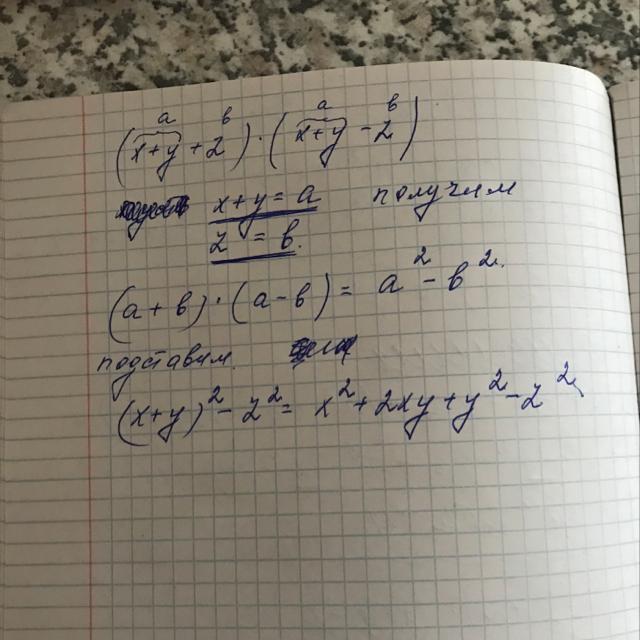 a b a b
(x+y+z)·(x+y-z)
x+y=a получим
z = b.
(a+b)·(a-b)= a²-b².
подставим.
(x+y)²-z²= x²+2xy+y²-z²